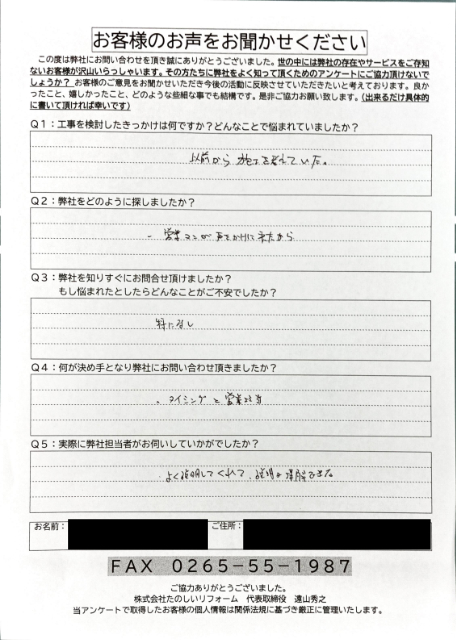 お客様のお声をお聞かせください
この度は弊社にお問い合わせを頂き誠にありがとうございました。世の中には弊社の存在やサービスをご存知
ないお客様が沢山いらっしゃいます。その方たちに弊社をよく知って頂くためのアンケートにご協力頂けないで
しょうか？ お客様のご意見をお聞かせいただき今後の活動に反映させていただきたいと考えております。良か
ったこと、嬉しかったこと、どのような些細な事でも結構です。是非ご協力お願い致します。（出来るだけ具体的
に書いて頂ければ幸いです）
Q1：工事を検討したきっかけは何ですか？どんなことで悩まれていましたか？
以前から 施工を考えていた。
Q2：弊社をどのように探しましたか？
・営業マンが声をかけに来たから
Q3：弊社を知りすぐにお問合せ頂けましたか？
もし悩まれたとしたらどんなことがご不安でしたか？
特になし
Q4：何が決め手となり弊社にお問い合わせ頂きましたか？
・タイミングと営業
Q5：実際に弊社担当者がお伺いしていかがでしたか？
・よく説明してくれて、理解できた
お名前：
ご住所：
FAX 0265-55-1987
ご協力ありがとうございました。
株式会社たのしいリフォーム 代表取締役 遠山秀之
当アンケートで取得したお客様の個人情報は関係法規に基づき厳正に管理いたします。